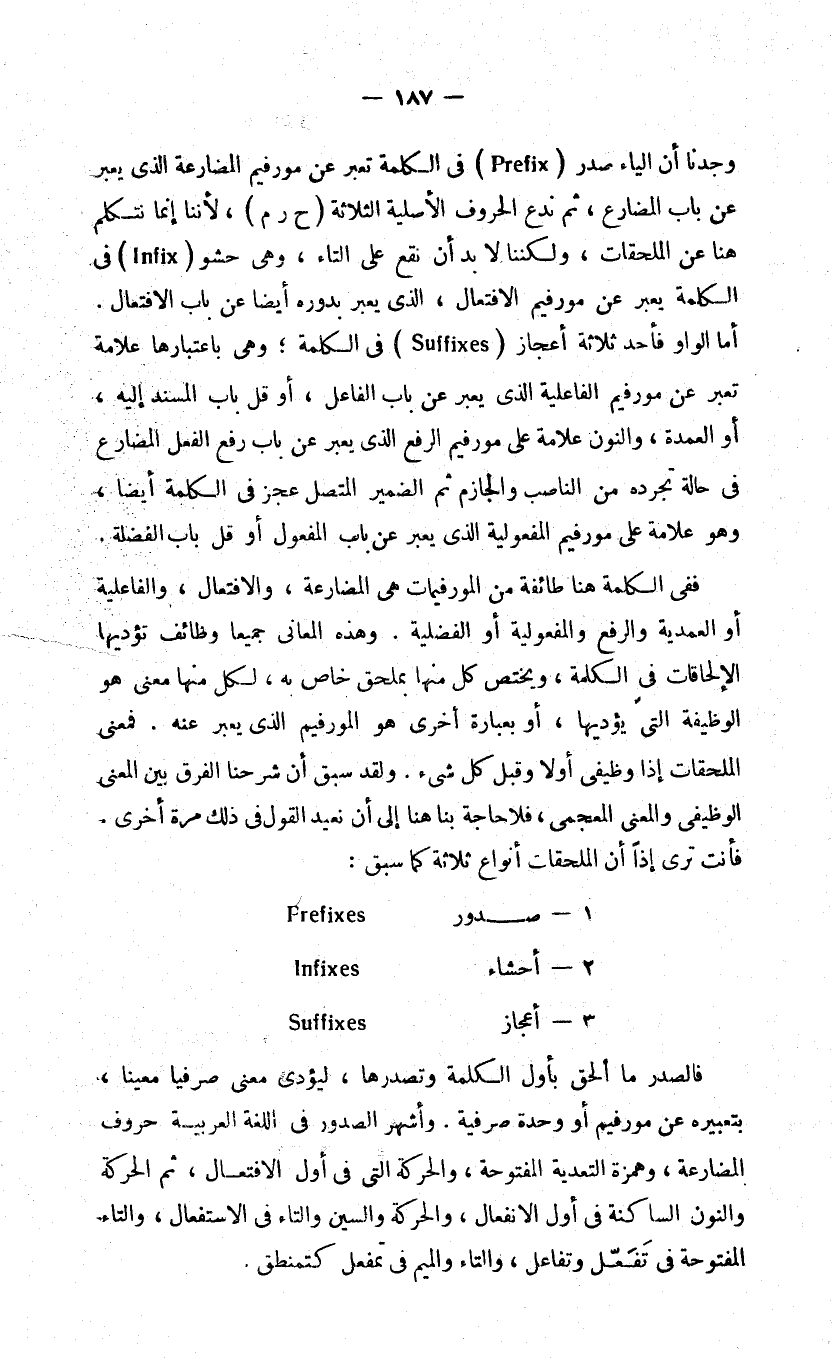 — ١٨٧ —
وجدنا أن الياء صدر ( Prefix ) فى الكلمة تعبر عن مورفيم المضارعة الذى يعبر
عن باب المضارع ، ثم ندع الحروف الأصلية الثلاثة ( ح ر م ) ، لأننا إنما نتكلم
هنا عن الملحقات ، ولكننا لا بد أن نقع على التاء ، وهى حشو ( Infix ) فى
الكلمة يعبر عن مورفيم الافتعال ، الذى يعبر بدوره أيضا عن باب الافتعال .
أما الواو فأحد ثلاثة أعجاز ( Suffixes ) فى الكلمة ؛ وهى باعتبارها علامة
تعبر عن مورفيم الفاعلية الذى يعبر عن باب الفاعل ، أو قل باب المسند إليه ،
أو العمدة ، والنون علامة على مورفيم الرفع الذى يعبر عن باب رفع الفعل المضارع
فى حالة تجرده من الناصب والجازم ثم الضمير المتصل عجز فى الكلمة أيضا ،
وهو علامة على مورفيم المفعولية الذى يعبر عن باب المفعول أو قل باب الفضلة .
ففى الكلمة هنا طائفة من المورفيمات هى المضارعة ، والافتعال ، والفاعلية
أو العمدية والرفع والمفعولية أو الفضلية . وهذه المعانى جميعا وظائف تؤديها
الإلحاقات فى الكلمة ، ويختص كل منها بملحق خاص به ، لكل منها معنى هو
الوظيفة التى يؤديها ، أو بعبارة أخرى هو المورفيم الذى يعبر عنه . فمعنى
الملحقات إذا وظيفى أولا وقبل كل شىء . ولقد سبق أن شرحنا الفرق بين المعنى
الوظيفى والمعنى المعجمى ، فلا حاجة بنا هنا إلى أن نعيد القول فى ذلك مرة أخرى .
فأنت ترى إذاً أن الملحقات أنواع ثلاثة كما سبق :
١ — صدور Prefixes
٢ — أحشاء Infixes
٣ — أعجاز Suffixes
فالصدر ما ألحق بأول الكلمة وتصدرها ، ليؤدى معنى صرفيا معينا ،
بتعبيره عن مورفيم أو وحدة صرفية . وأشهر الصدور فى اللغة العربية حروف
المضارعة ، وهمزة التعدية المفتوحة ، والحركة التى فى أول الافتعال ، ثم الحركة
والنون الساكنة فى أول الانفعال ، والحركة والسين والتاء فى الاستفعال ، والتاء
المفتوحة فى تَفَعّل وتفاعل ، والتاء والميم فى تمفعل كتمنطق .